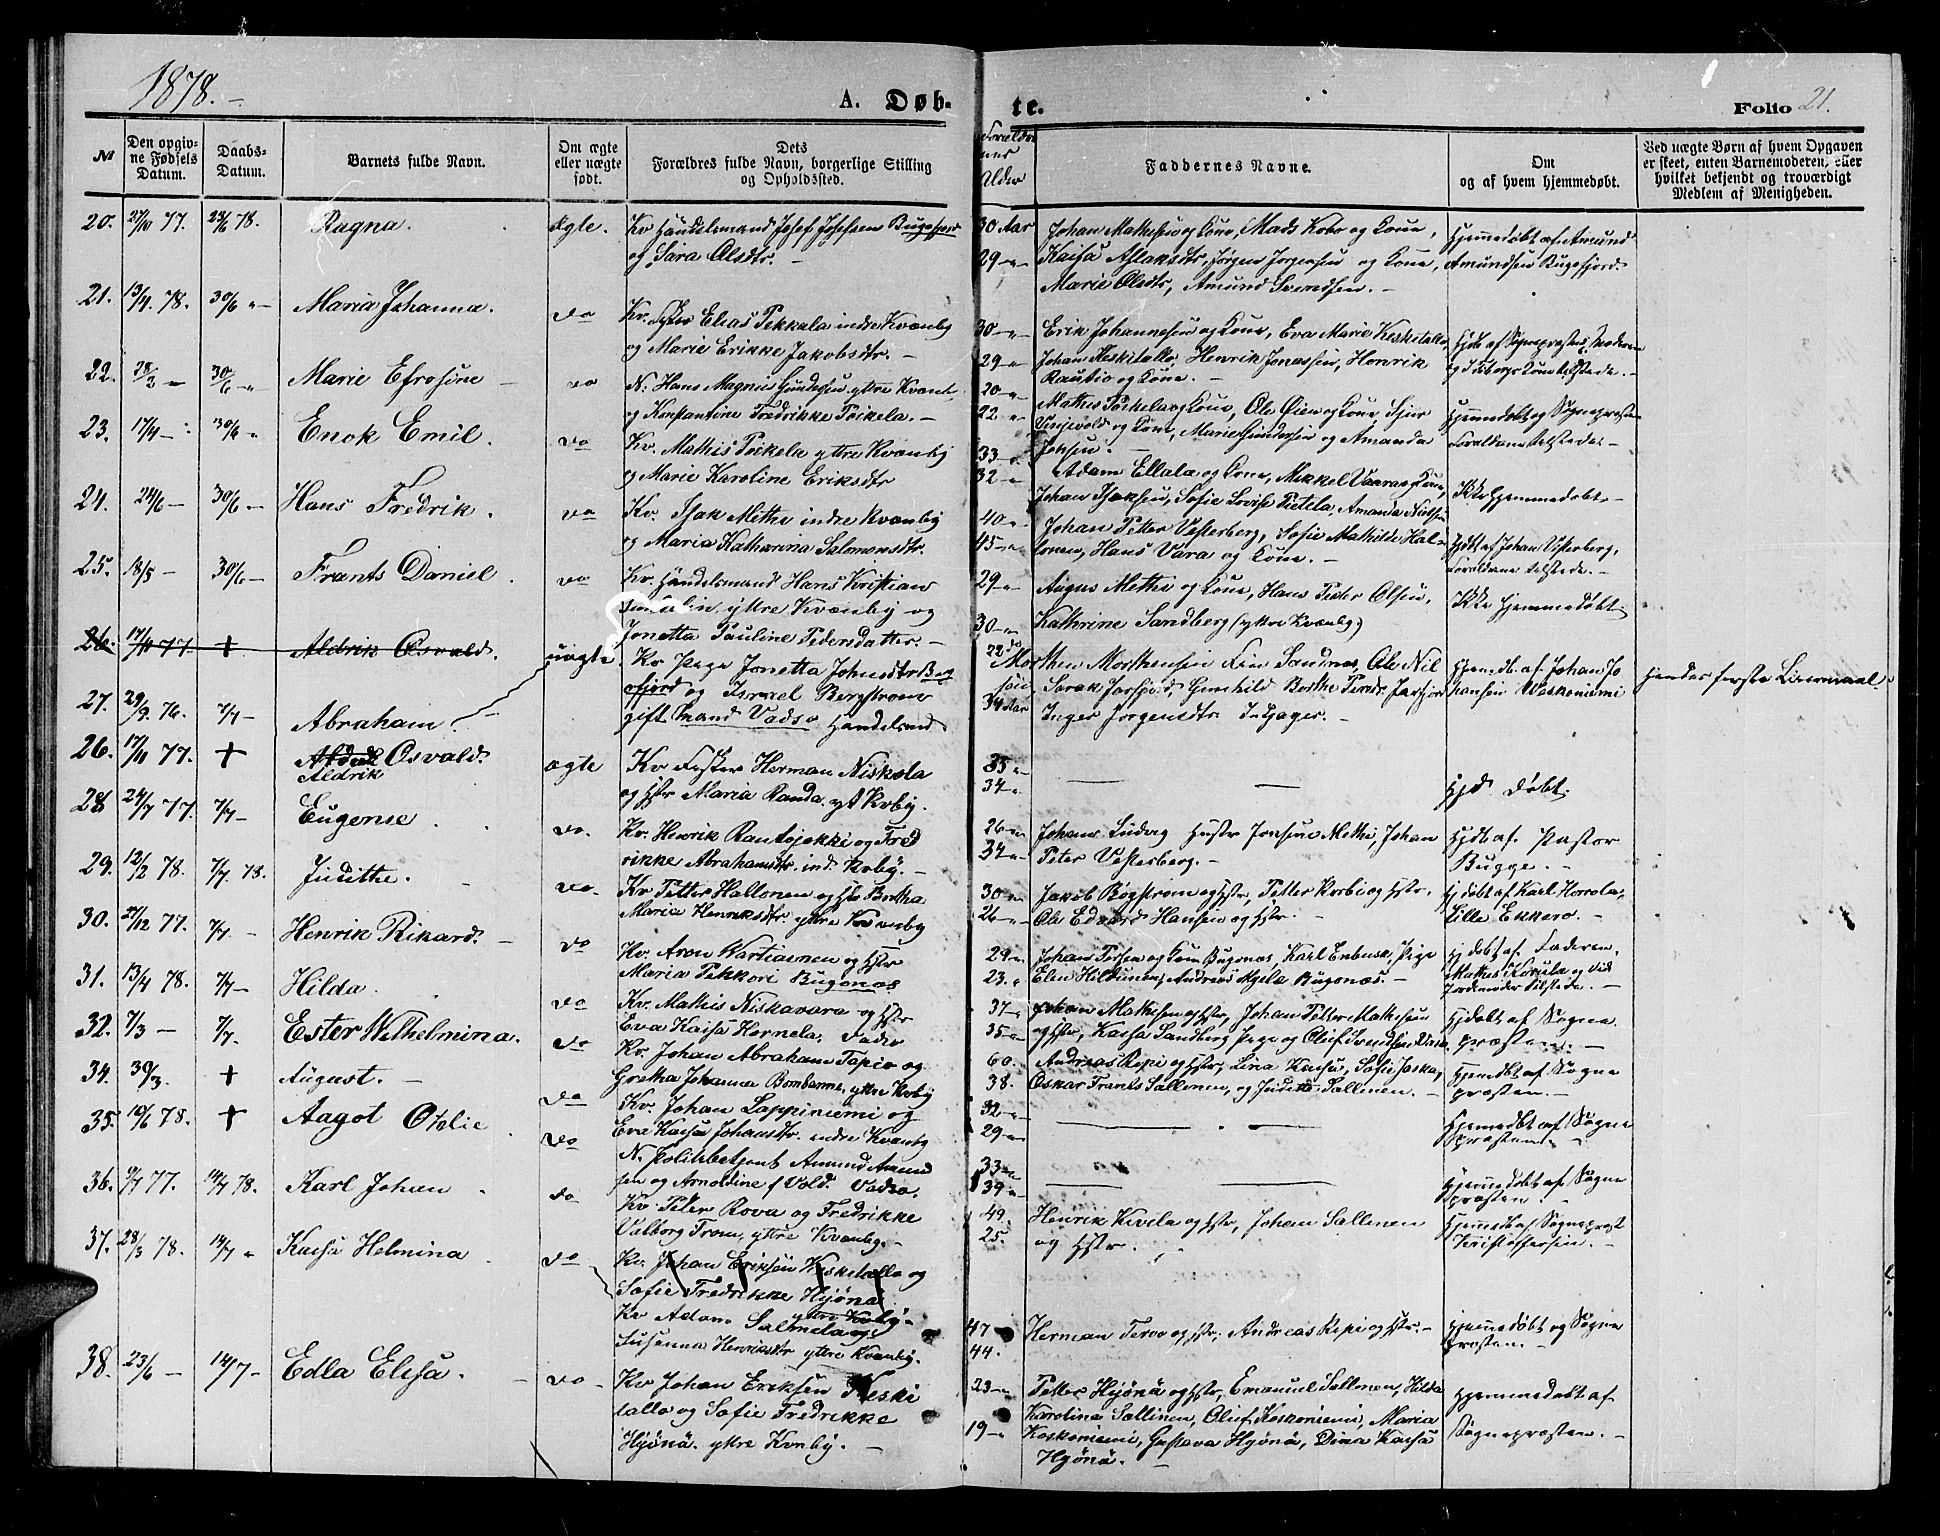 1878.
A. Døb-
te.
Folio 21.
№
Den opgiv-
ne Fødsels
Datum.
Daabs-
Datum.
Barnets fulde Navn.
Om ægte
eller uægte
født.
Dets
Forældres fulde Navn, borgerlige Stilling
og Opholdssted.
Forældre
nes
Alder
Faddernes Navne.
Om
og af hvem hjemmedøbt.
Ved uægte Børn af hvem Opgaven
er skeet, enten Barnemoderen, eller
hvilket bekjendt og troværdigt
Medlem af Menigheden.
20. 27/10 77. 23/6 78. Ragna. Ægte.
Kv Handelsmand Josef Josefsen Bugefjord
og Sara Olsdtr. –
30 Aar
29 – "
Johan Mathisen og Kone, Mads Kobo og Kone,
Kaisa Aslaksdtr, Jørgen Jørgensen og Kone,
Marie Olsdtr, Amund Svendsen. –
Hjemmedøbt af Amund
Amundsen Bugefjord.
21. 13/4 78. 30/6 " – Maria Johanna. do
Kv. Elias Pekkala indre Kvænby
og Marie Erikke Jakobsdtr. –
30 – "
29 – "
Erik Johannesen og Kone, Eva Marie Keskitallo,
Johan Keskitallo, Henrik Jonassen, Henrik
Rautio og Kone. –
22. 28/3 – 30/6 – " Marie Efrosine – do
N. Hans Magnus Gundersen yttre Kvænb.
og Konstantine Fredrikke Poikela. –
20 – "
22 – "
Mathis Poikela og Kone, Ole Øien og Kone, Sjur
Vinjevold og Kone, Marie Gundersen og Amanda
Jensen. –
23. 17/4 – 30/6 " Enok Emil. do
Kv. Mathis Poikela yttre Kvænby
og Marie Karoline Eriksdtr
33 – "
32 – "
Adam Ellala og Kone, Mikkel Vaara og Kone,
Johan Isaksen, Sofie Lovise Pietela, Amanda Nielsen
Ikke Hjemmedøbt. –
24. 24/6 – 30/6 – Hans Fredrik. do
Kv. Isak Methi indre Kvænby
og Maria Katharina Salomonsdtr.
40 – "
45 – "
Johan Petter Vesterberg, Sofie Mathilde Hal-
lonen, Hans Vara og Kone. –
Hjdbt af Johan Vesterberg,
Forældrene tilstede. –
25. 18/5 – 30/6 – Frants Daniel. do
Kv. Handelsmand Hans Kristian
yttre Kvænby og
Jonetta Pauline Pedersdatter. –
29 – "
30 – "
August Methi og Kone, Hans Peter Olsen,
Kathrine Sandberg (yttre Kvænby.)
Ikke hjemmedøbt
26. 17/11 77. + Aldrik Osvald.
27. 29/9 76. 7/7 – Abraham. uægte.
Kv Pige Jonetta Johnsdtr Bug
øfjord og Israel Bergstrøm
gift Mand Vadsø Handelsmd
22 do
34 Aar
Morthen Morthensen Fin Sandnes, Ole Nil
sen
Sarak Jarfjord, Gunhild Berthe Persdr Jarfjord
Inger Jørgensdtr. –
Hjem. db. af Johan Jo
hansen Weskoniemi
Hendes første Leiermaal.
26. 17/11 77. + Aldrik Osvald. ægte
Aldrik
Kv Fisker Herman Niskala
og Hstr Maria Randa, yt Kvby.
35 "
34 "
Hjd døbt.
28 24/7 77. 7/7 – Eugense. do.
Kv. Henrik Rautojokki og Fred
rikke Abrahamsdtr. ind. Kvby. –
26 – "
34 – "
Johans Ludvig Hustr Jonsine Methi, Johan
Peter Vesterberg. –
Hjdb af. Pastor
Bugge.
29. 12/2 78. 7/7. 78. Judithe. do.
Kv Petter Hallonen og Hstr Bertha
Maria Henriksdtr yttre Kvænby
30 – "
26 – "
Jakob Bøgstrøm og Hstr, Petter Korbi og Hstr.
Ole Edvard Hansen og Hstr. –
Hj døbt af Karl Horcola,
Lille Ekkerø. –
30. 27/12 77. 7/7 – Henrik Rikard. – do
Kv. Aron Wartiainen og Hstr
Maria Pekkori Bugønæs
29 – "
23. "
Johan Persen og Kone Bugønæs, Karl Erbense, Pige
Elen Hildunen, Andreas Bugonæs. –
Hj døbt af. Faderen,
Mathis og ved
Jordemoder tilstede. –
31. 13/4 78. 7/7 – Hilda. do
Kv. Mathis Niskavara og Hstr
Eva Kaisa Hornela. Vadsø
37 – "
35 – "
Johan Mathisen og Hstr, Johan Petter Mathisen
og Hstr, Kaisa Sandberg Pige og Oluf Svendsen Vadsø
Hjdøbt af Sogne
præsten. –
32. 7/3 – 7/7. Ester Wilhelmina. do
Kv. Johan Abraham Tapio og
Gretha Johanna Bombanne, yttre Kvby
60.
38.
Andreas Repi og Hstr, Lina Kaisa, Sofie Jaska,
Oskar Frants Sallinen, og Judit Sallinen. –
Hjemdøbt af Sogne
præsten. –
34. 30/3. + August. – do
Kv. Johan Lappiniemi og
Eva Kaisa Johansdtr. indre Kvænby
32 – "
29 – "
Hjemmedøbt af Sogne
præsten.
35. 10/6 78. + Aagot Otelie do
N. Politibetjent Amund Amund
sen og Arnoldine f Vold. Vadsø.
33 – "
39 – "
Hjemmedøbt af Sogne
præsten
36. 9/7 77. 14/7 78. Karl Johan. do
Kv. Peter Rova og Fredrikke
Valborg Trom, yttre Kvænby. –
49.
25.
Henrik Kivela og Hstr, Johan Sallinen
og Hstr.
Hjemmedb af Sogneprest
Kristoffersen. –
37. 28/3 78. 14/7 " Kaisa Helmina. do
Kv. Johan Eriksen Keskitallo og
Sofie Fredrikke Hyønä
yttre Kvby. –
Kv Adam Salmela og
Susanna Henriksdtr yttre Kvænby.
47 –
44.
Herman Tervo og Hstr. Andreas Repi og Hstr. –
Hjemmedøbt og Sogne
præsten. –
38. 23/6 – 14/7 – Edla Elisa. – do –
Kv Johan Eriksen Keski
tallo og Sofie Fredrikke
Hyønä. yttre Kvnby. –
23 – "
19 – "
Petter Hyønä og Hstr, Emanuel Sallinen, Hilda
Karolina Sallinen, Oluf Koskoniemi, Maria
Koskoniemi, Gustava Hyønä, Dina Kaisa
Hyønä. –
Hjemmedøbt af
Sognepræsten. –